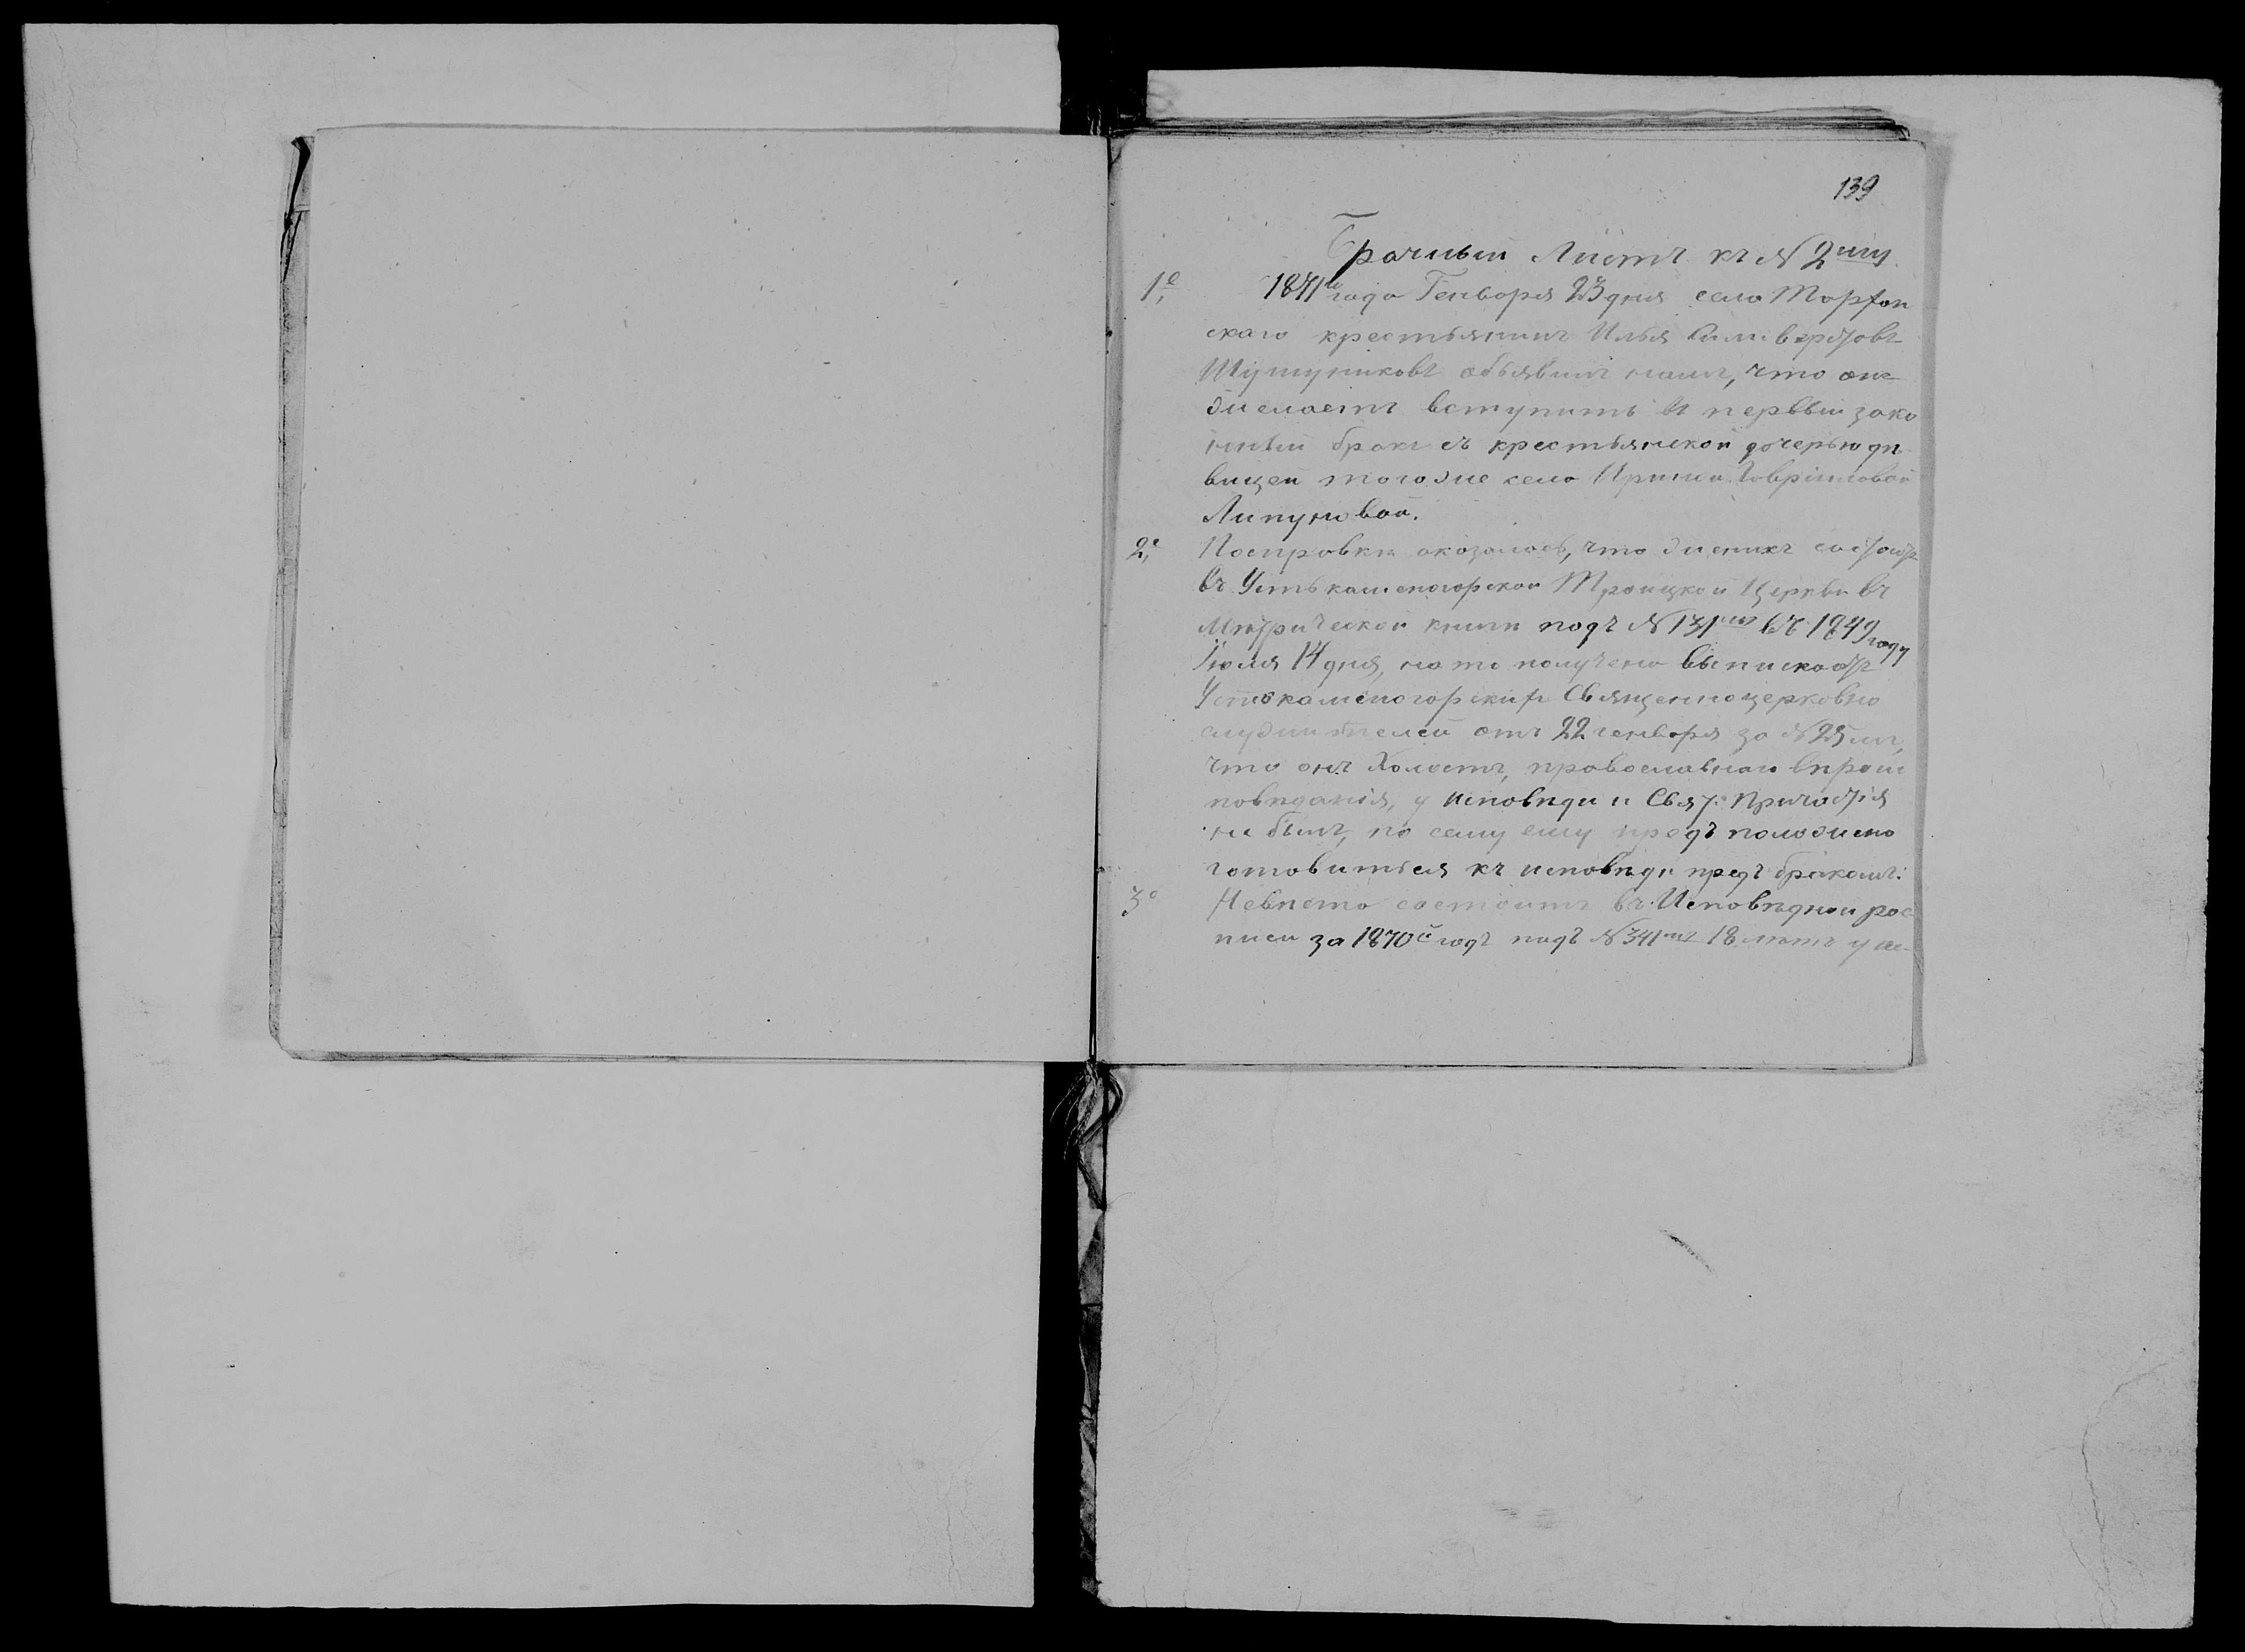 139
Брачный Листъ къ № 2му
1е, 1871го года Генваря 23 дня села Таргон
скаго крестьянинъ Илья Силивертовъ
Шушуниковъ объявилъ намъ, что онъ
желаетъ вступить въ первый зако
нный бракъ съ крестьянской дочерью дѣ
вицей того же села Ириной Гавриловой
Липуновой.
2е, Посправкѣ оказалось, что женихъ состоитъ
въ Устькаменогорской Троицкой Церкви въ
Метрической книги подъ № 131мъ въ 1849 году
Іюля 14 дня, на то получена выписка отъ
Устькаменогорскихъ Священноцерковно
служителей отъ 22 генваря за № 25мъ,
что онъ Холостъ, православнаго вѣроис
повѣданія, у исповѣди и Свят: Причастія
не былъ, по сему ему предъ положено
готовиться къ исповѣди предъ бракомъ.
3е Невѣста состоитъ въ Исповѣдной рос
писи за 1870й годъ подъ № 341мъ 18 лѣтъ у ис-